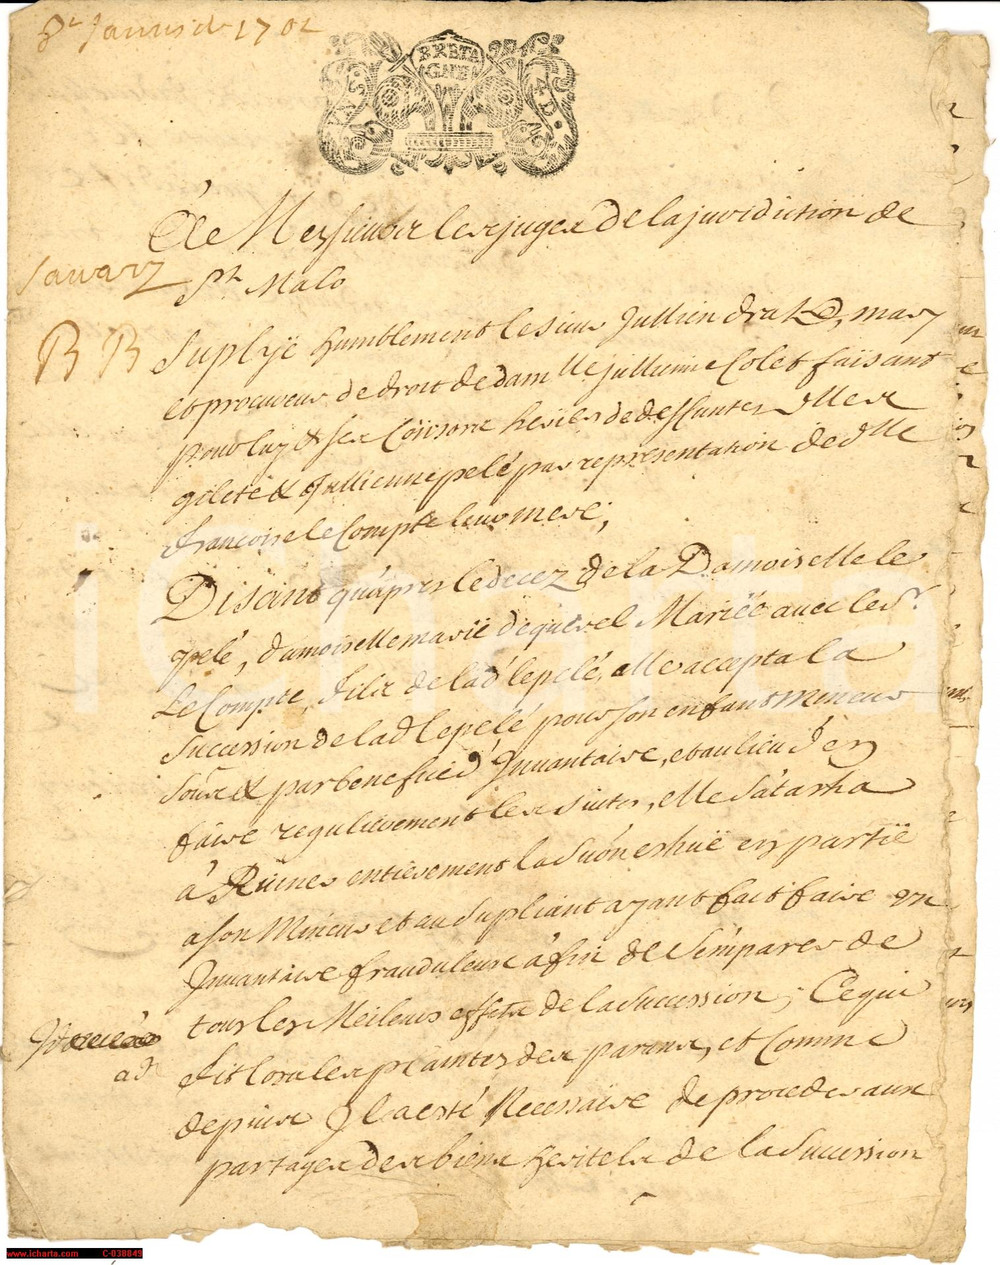 Janvier 1702
BRETAGNE
UN S. 4 D.
De Messieurs les juges de la juridiction de
St Malo
Savary
BB
Suplye humblement le sieur Jullien drake, mary
et procureur de droit de dam lle jullienne Colet faisant
pour luy & ses Consors heriers de deffuntes dlles
gilete & Jullienne pelé par representation de dlle
Francoise le Compte leur mere,
Disant qu'apres le decez de la Damoiselle le
pelé, damoiselle marie Mariée avec le Sr
Le Compte, fils de lad lepelé, alle accepta la
succession de lad lepelé pour son enfant mineur
sous & par benefice d'Invantaire, et au lieu d'en
faire regulierement les suites, elle s'atacha
à Rüiner entierement la Suon eshuë en partië
a son Mineur et au Supliant ayant fait faire un
Invantaire frauduleux afin de S'emparer de
tous les Meileurs effets de la Succession; Ce qui
fit lors les pleintes des parens, et Comme
depuis Il a esté Necessaire de proceder aux
partages des biens heritels de la Succession
www.icharta.com C-038849
iCharta